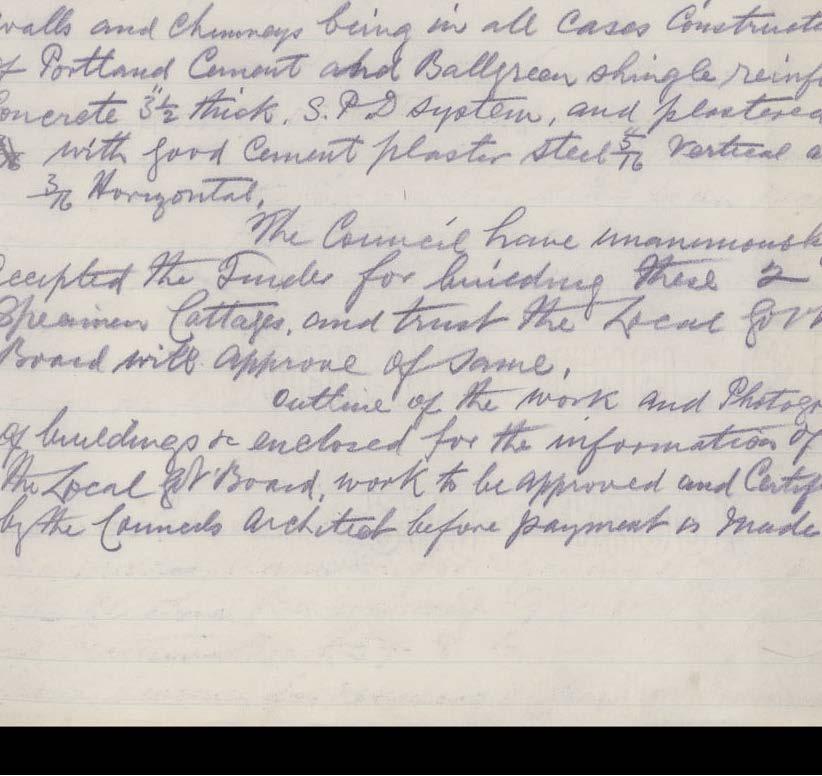 walls and Chimneys being in all Cases Constructe
of Portland Cement and Ballgreen shingle reinf
Concrete 3½" thick, S.P.D system, and plastered
with good Cement plaster steel 5/16 Vertical a
3/16 Horizontal,
The Council have unanimously
ccepted the Tender for building these 2
Specimen Cottages, and trust the Local Govt
Board will approve of same,
Outline of the work and Photogr
of buildings &c enclosed for the information of
the Local Gvt Board, work to be approved and Certif
by the Councils Architect before payment is Made